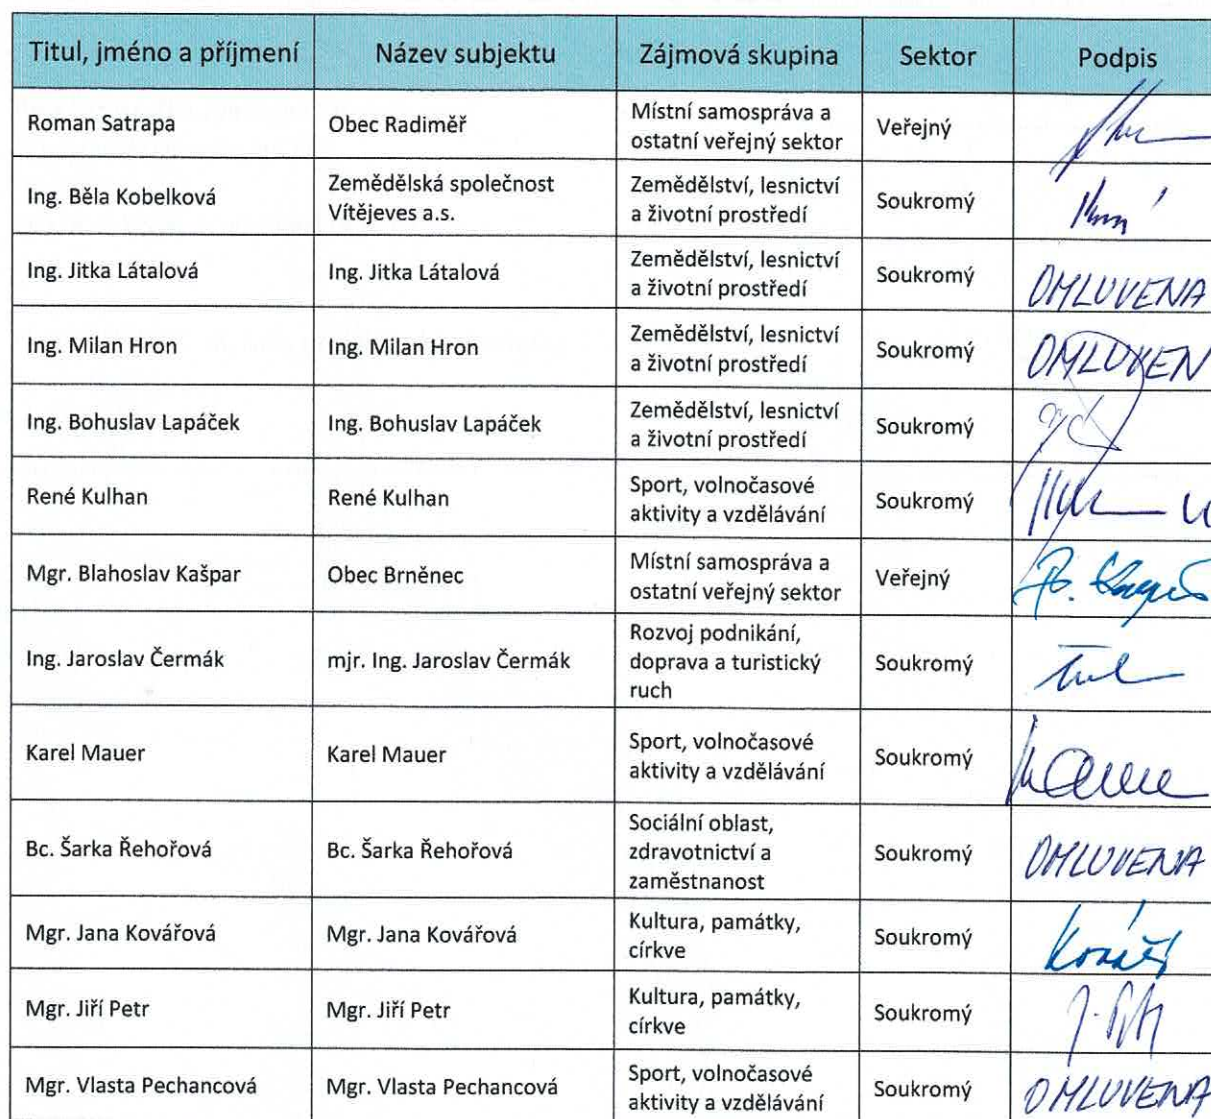 Titul, jméno a příjmení Název subjektu Zájmová skupina Sektor Podpis
Roman Satrapa Obec Radiměř Místní samospráva a ostatní veřejný sektor Veřejný
Ing. Běla Kobelková Zemědělská společnost Vítějeves a.s. Zemědělství, lesnictví a životní prostředí Soukromý
Ing. Jitka Látalová Ing. Jitka Látalová Zemědělství, lesnictví a životní prostředí Soukromý OMLUVENA
Ing. Milan Hron Ing. Milan Hron Zemědělství, lesnictví a životní prostředí Soukromý OMLUVEN
Ing. Bohuslav Lapáček Ing. Bohuslav Lapáček Zemědělství, lesnictví a životní prostředí Soukromý
René Kulhan René Kulhan Sport, volnočasové aktivity a vzdělávání Soukromý
Mgr. Blahoslav Kašpar Obec Brněnec Místní samospráva a ostatní veřejný sektor Veřejný
Ing. Jaroslav Čermák mjr. Ing. Jaroslav Čermák Rozvoj podnikání, doprava a turistický ruch Soukromý
Karel Mauer Karel Mauer Sport, volnočasové aktivity a vzdělávání Soukromý
Bc. Šarka Řehořová Bc. Šarka Řehořová Sociální oblast, zdravotnictví a zaměstnanost Soukromý OMLUVENA
Mgr. Jana Kovářová Mgr. Jana Kovářová Kultura, památky, církve Soukromý
Mgr. Jiří Petr Mgr. Jiří Petr Kultura, památky, církve Soukromý
Mgr. Vlasta Pechancová Mgr. Vlasta Pechancová Sport, volnočasové aktivity a vzdělávání Soukromý OMLUVENA